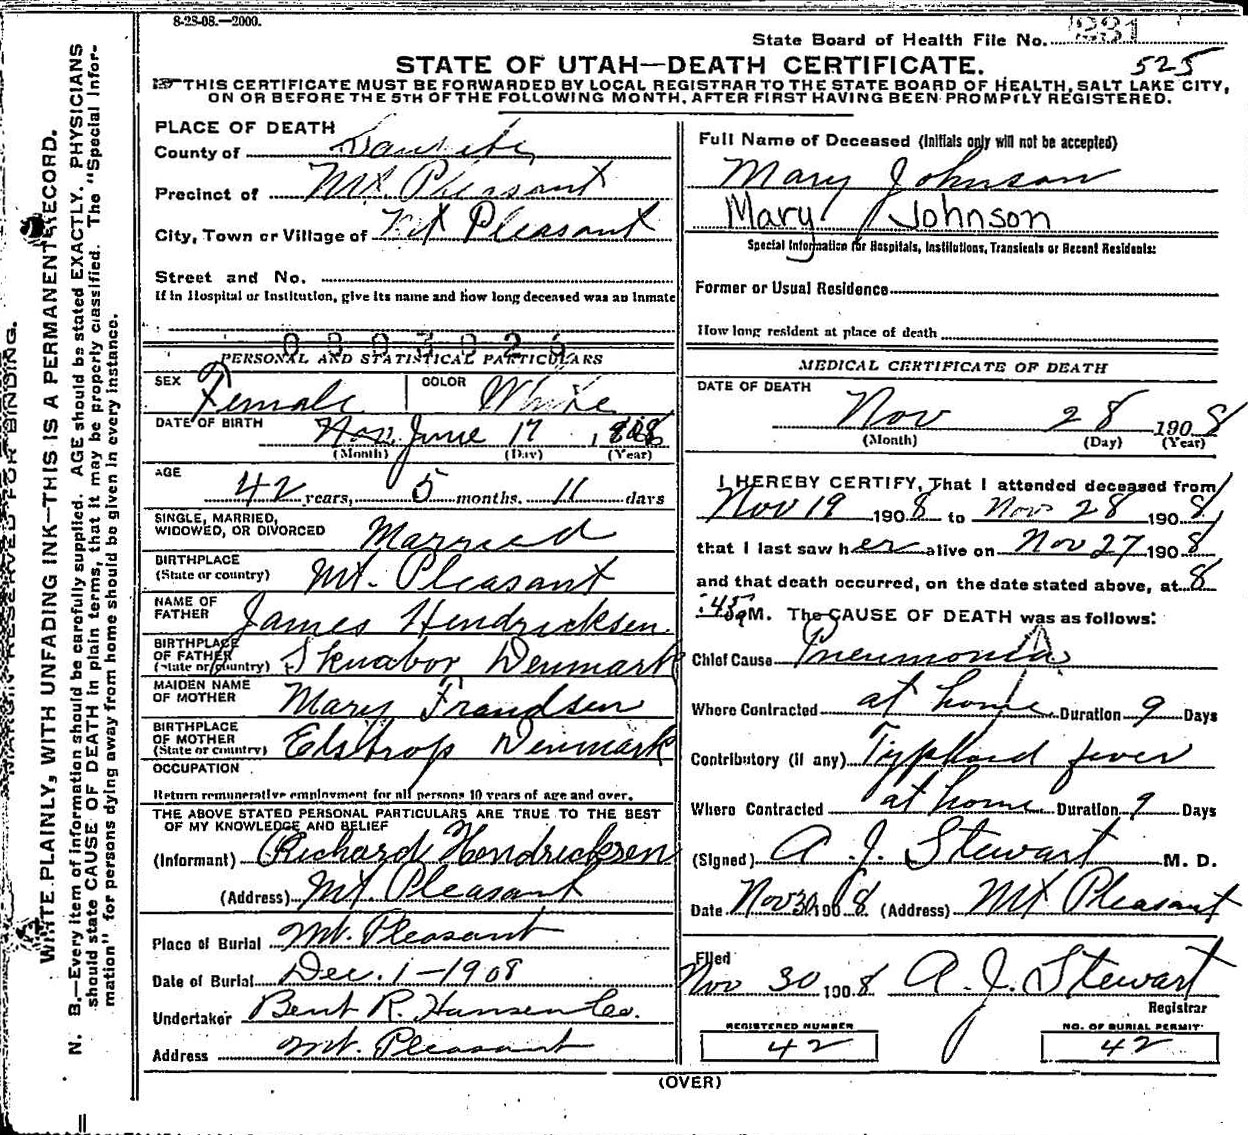 8-28-08.—2000.
State Board of Health File No. 231
525
STATE OF UTAH—DEATH CERTIFICATE.
THIS CERTIFICATE MUST BE FORWARDED BY LOCAL REGISTRAR TO THE STATE BOARD OF HEALTH, SALT LAKE CITY,
ON OR BEFORE THE 5TH OF THE FOLLOWING MONTH, AFTER FIRST HAVING BEEN PROMPTLY REGISTERED.
MARGIN RESERVED FOR BINDING.
WRITE PLAINLY, WITH UNFADING INK—THIS IS A PERMANENT RECORD.
N. B.—Every item of information should be carefully supplied. AGE should be stated EXACTLY. PHYSICIANS
should state CAUSE OF DEATH in plain terms, that it may be properly classified. The "Special Infor-
mation" for persons dying away from home should be given in every instance.
PLACE OF DEATH
County of Sanpete
Precinct of Mt. Pleasant
City, Town or Village of Mt Pleasant
Street and No.
If in Hospital or Institution, give its name and how long deceased was an Inmate
PERSONAL AND STATISTICAL PARTICULARS
SEX Female COLOR White
DATE OF BIRTH Nov. June 17
(Month) (Day) (Year)
AGE 42 years, 5 months, 11 days
SINGLE, MARRIED,
WIDOWED, OR DIVORCED Married
BIRTHPLACE
(State or country) Mt. Pleasant
NAME OF
FATHER James Hendricksen.
BIRTHPLACE
OF FATHER
(State or country) Denmark
MAIDEN NAME
OF MOTHER Mary Frandsen
BIRTHPLACE
OF MOTHER
(State or country) Elstrop Denmark
OCCUPATION
Return remunerative employment for all persons 10 years of age and over.
THE ABOVE STATED PERSONAL PARTICULARS ARE TRUE TO THE BEST
OF MY KNOWLEDGE AND BELIEF
(Informant) Richard Hendricksen
(Address) Mt. Pleasant
Place of Burial Mt. Pleasant
Date of Burial Dec. 1-1908
Undertaker Bent R. Hansen Co.
Address Mt. Pleasant
Full Name of Deceased (Initials only will not be accepted)
Mary Johnson
Mary Johnson
Special Information for Hospitals, Institutions, Transients or Recent Residents:
Former or Usual Residence
How long resident at place of death
MEDICAL CERTIFICATE OF DEATH
DATE OF DEATH
Nov 28 1908
(Month) (Day) (Year)
I HEREBY CERTIFY, That I attended deceased from
Nov 19 1908 to Nov 28 1908
that I last saw her alive on Nov 27 1908
and that death occurred, on the date stated above, at 8
:45 a M. The CAUSE OF DEATH was as follows:
Chief Cause Pneumonia
Where Contracted at home Duration 9 Days
Contributory (if any) Typhoid fever
Where Contracted at home Duration 9 Days
(Signed) A. J. Stewart M. D.
Date Nov 30 1908 (Address) Mt Pleasant
Filed
Nov 30 1908 A. J. Stewart
Registrar
REGISTERED NUMBER
42
NO. OF BURIAL PERMIT
42
(OVER)